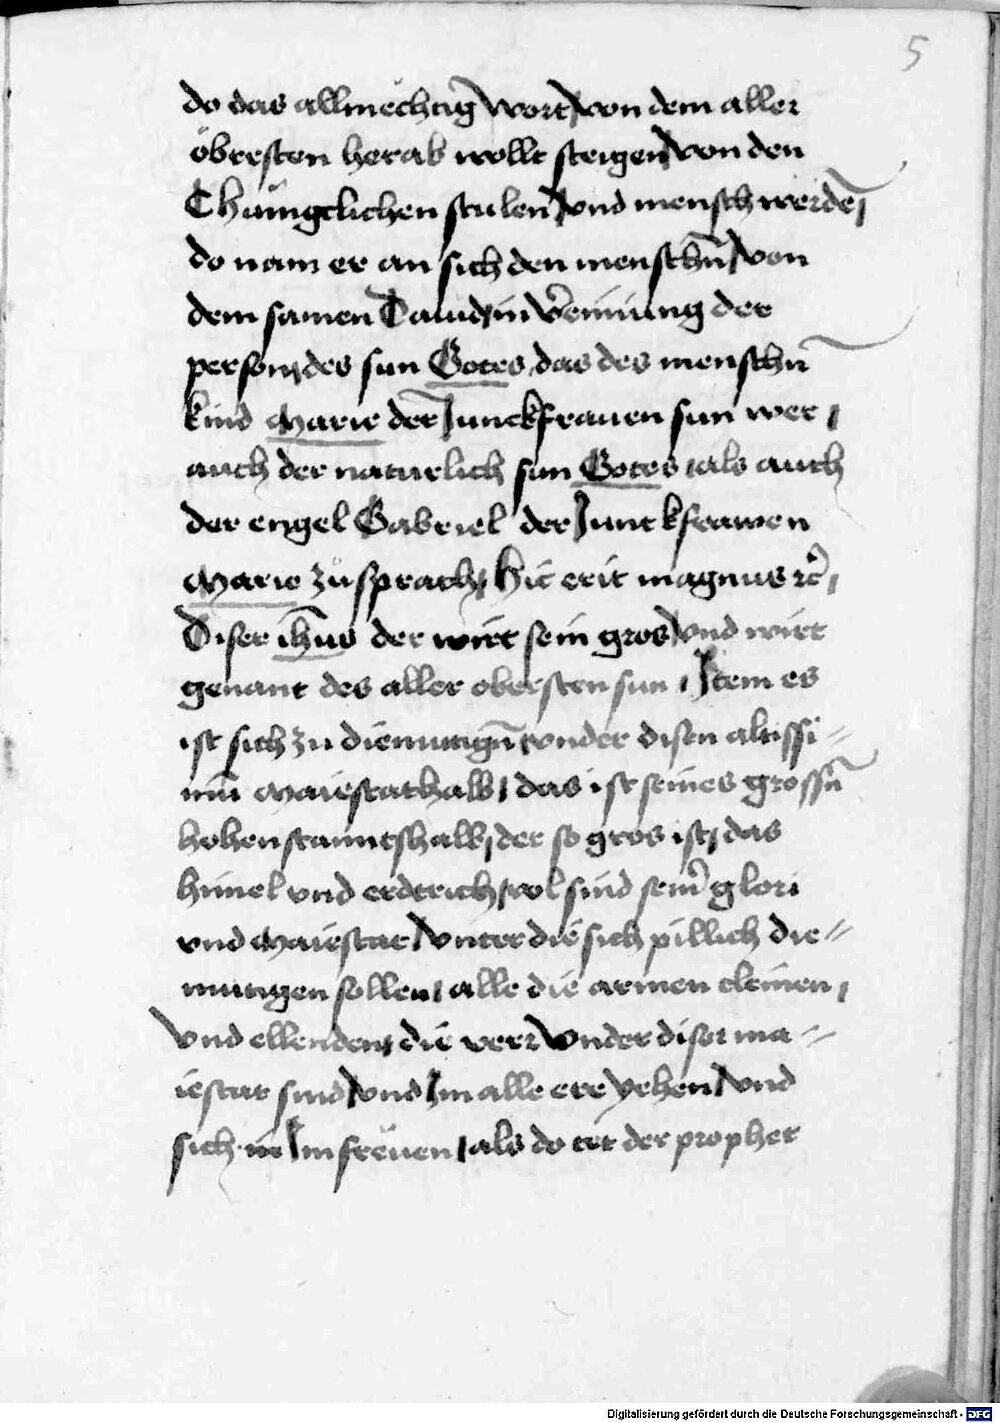 5
do das allmechtig wort / von dem aller
öbersten herab wollt steigen / von den
Chüngclichen stulen / vnd mensch werdē /
do nam er an sich den menschn̄ / von
dem samen Dauid / in v̄einiung der
person / des sun Gotes / das des menschn̄
kind Marie der Junckfrauen sun wer /
auch der naturlich sun Gotes / als auch
der engel Gabriel der Junckfrawen
Marie zůsprach / Hic erit magnus ꝛc̄ /
Diser ihus̄ der wirt sein gros / vnd wirt
genant des aller obersten sun / Item es
ist sich zu diemutign̄ vnder disen altissi=
mū Maiestathalb / das ist seines grossn̄
hohen stannts halb / der so gros ist / das
himel vnd erdtrich / vol sind sein̄ glori
vnd Maiestat / Vnter die sich pillich die=
mutigen sollen / alle die armen cleinen /
Vnd ellenden / die verr Vnder diser ma=
iestat sind / vnd Im alle ere yehen / vnd
sich in Im freuen / als do tet der prophet
Digitalisierung gefördert durch die Deutsche Forschungsgemeinschaft - DFG